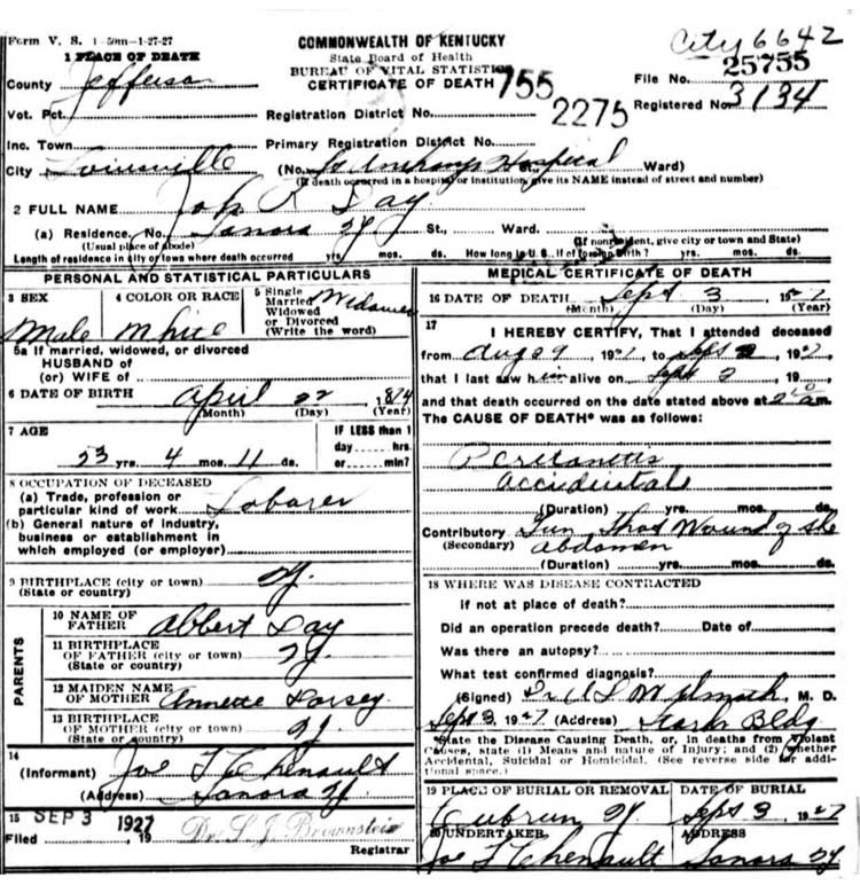 Form V. S. 1-50m-1-27-27
COMMONWEALTH OF KENTUCKY
State Board of Health
BUREAU OF VITAL STATISTICS
CERTIFICATE OF DEATH
755
2275
City 6642
25755
File No.
Registered No. 3134
1 PLACE OF DEATH
County Jefferson
Vot. Pct. Registration District No.
Inc. Town Primary Registration District No.
City Louisville (No. St Anthonys Hospital Ward)
(If death occurred in a hospital or institution, give its NAME instead of street and number)
2 FULL NAME Day
(a) Residence, No. Sonora Ky St., Ward.
(Usual place of abode) (If nonresident, give city or town and State)
Length of residence in city or town where death occurred yrs. mos. ds. How long in U. S. if of foreign birth? yrs. mos. ds.
PERSONAL AND STATISTICAL PARTICULARS
3 SEX
Male
4 COLOR OR RACE
White
5 Single
Married
Widowed
or Divorced
(Write the word)
Widower
5a If married, widowed, or divorced
HUSBAND of
(or) WIFE of
6 DATE OF BIRTH April 22, 1874
(Month) (Day) (Year)
7 AGE
53 yrs. 4 mos. 11 ds.
IF LESS than 1
day hrs.
or min?
8 OCCUPATION OF DECEASED
(a) Trade, profession or
particular kind of work Laborer
(b) General nature of industry,
business or establishment in
which employed (or employer)
9 BIRTHPLACE (city or town) Ky.
(State or country)
PARENTS
10 NAME OF
FATHER Abbert Day
11 BIRTHPLACE
OF FATHER (city or town) Ky
(State or country)
12 MAIDEN NAME
OF MOTHER Annette Dorsey
13 BIRTHPLACE
OF MOTHER (city or town) Ky
(State or country)
14
(Informant) Joe T Chenault
(Address) Sonora Ky
15 SEP 3 1927
Filed , 19 Dr. L. J. Brownstein
Registrar
MEDICAL CERTIFICATE OF DEATH
16 DATE OF DEATH Sept 3, 1927
(Month) (Day) (Year)
17
I HEREBY CERTIFY, That I attended deceased
from Aug 29, 1927, to Sept 2, 1927,
that I last saw him alive on Sept 2, 19
and that death occurred on the date stated above at am.
The CAUSE OF DEATH* was as follows:
Peritonitis
accidental
(Duration) yrs. mos. ds.
Contributory Gun Shot Wound of the
(Secondary) abdomen
(Duration) yrs. mos. ds.
18 WHERE WAS DISEASE CONTRACTED
if not at place of death?
Did an operation precede death? Date of
Was there an autopsy?
What test confirmed diagnosis?
(Signed) M. D.
Sept 3, 1927 (Address) Starks Bldg
*State the Disease Causing Death, or, in deaths from Violent
Causes, state (1) Means and nature of Injury; and (2) whether
Accidental, Suicidal or Homicidal. (See reverse side for addi-
tional space.)
19 PLACE OF BURIAL OR REMOVAL
DATE OF BURIAL
Ky Sept 3, 1927
20 UNDERTAKER
ADDRESS
Joe T Chenault Sonora Ky